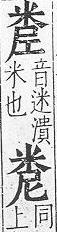 音迷潰
米也
同
上